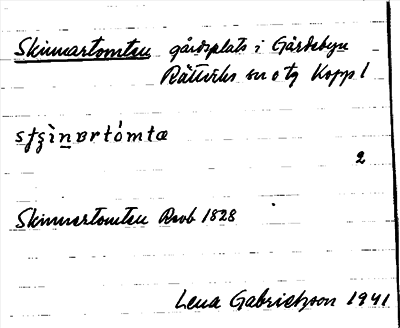 Skinnartomten gårdsplats i Gärdebyn
Rättviks sn o tg Kopp l
2
Skinnartomten Rsob 1828
Lena Gabrielsson 1941